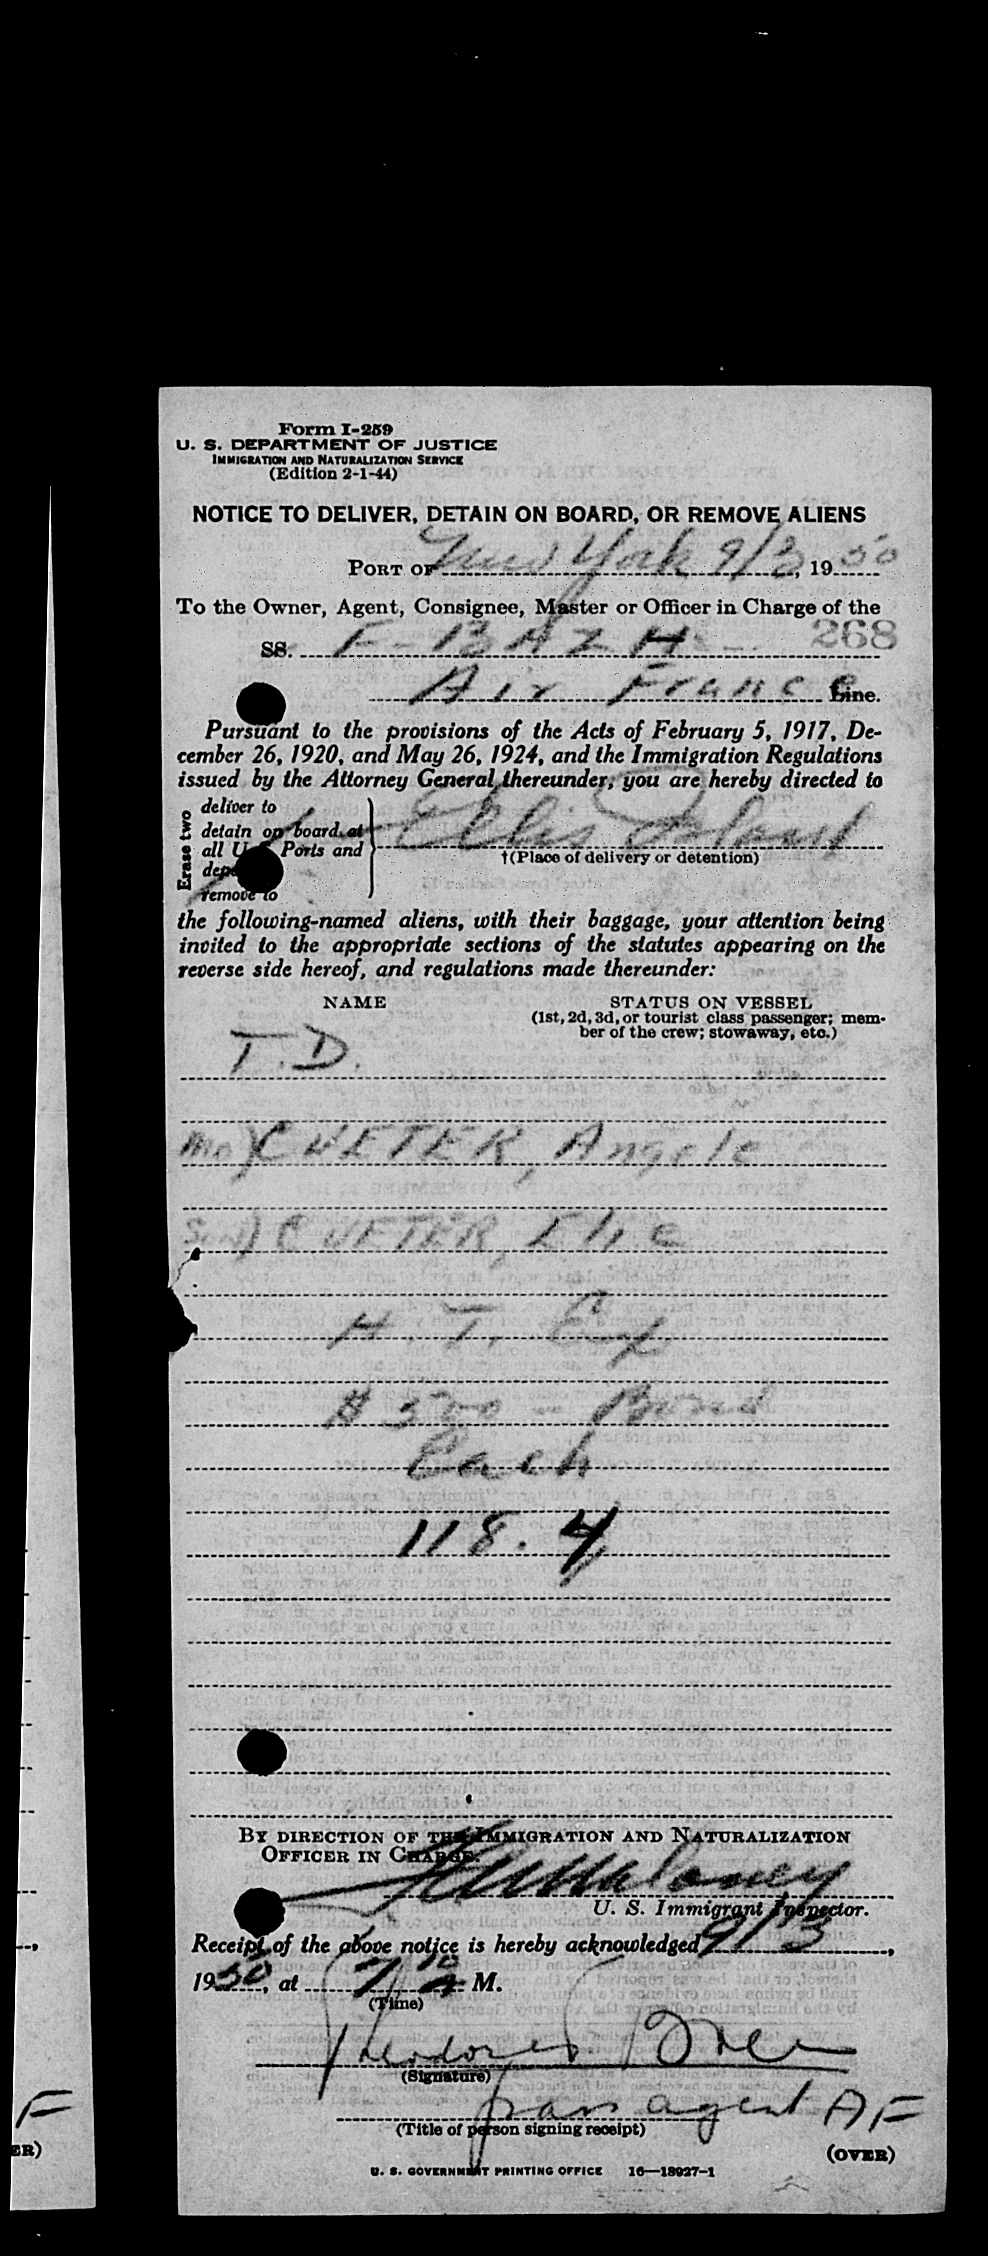 Form I-259
U. S. DEPARTMENT OF JUSTICE
IMMIGRATION AND NATURALIZATION SERVICE
(Edition 2-1-44)
NOTICE TO DELIVER, DETAIN ON BOARD, OR REMOVE ALIENS
PORT OF New York 9/3, 19 50
To the Owner, Agent, Consignee, Master or Officer in Charge of the
SS. F-BAZH 268
Air France Line.
Pursuant to the provisions of the Acts of February 5, 1917, De-
cember 26, 1920, and May 26, 1924, and the Immigration Regulations
issued by the Attorney General thereunder, you are hereby directed to
Erase two
deliver to
detain on board at
all U. S. Ports and
remove to
Ellis Island
†(Place of delivery or detention)
the following-named aliens, with their baggage, your attention being
invited to the appropriate sections of the statutes appearing on the
reverse side hereof, and regulations made thereunder:
NAME STATUS ON VESSEL
(1st, 2d, 3d, or tourist class passenger; mem-
ber of the crew; stowaway, etc.)
T.D.
CVETER, Angele
Son) CVETER, Elie
H.T. Ex
$500 Bond
Each
118.4
BY DIRECTION OF THE IMMIGRATION AND NATURALIZATION
OFFICER IN CHARGE.
Maloney
U. S. Immigrant Inspector.
Receipt of the above notice is hereby acknowledged 9/3,
1950, at M.
(Time)
Theodore
(Signature)
pass agent AF
(Title of person signing receipt)
(OVER)
U. S. GOVERNMENT PRINTING OFFICE 16—18927-1
F
ER)